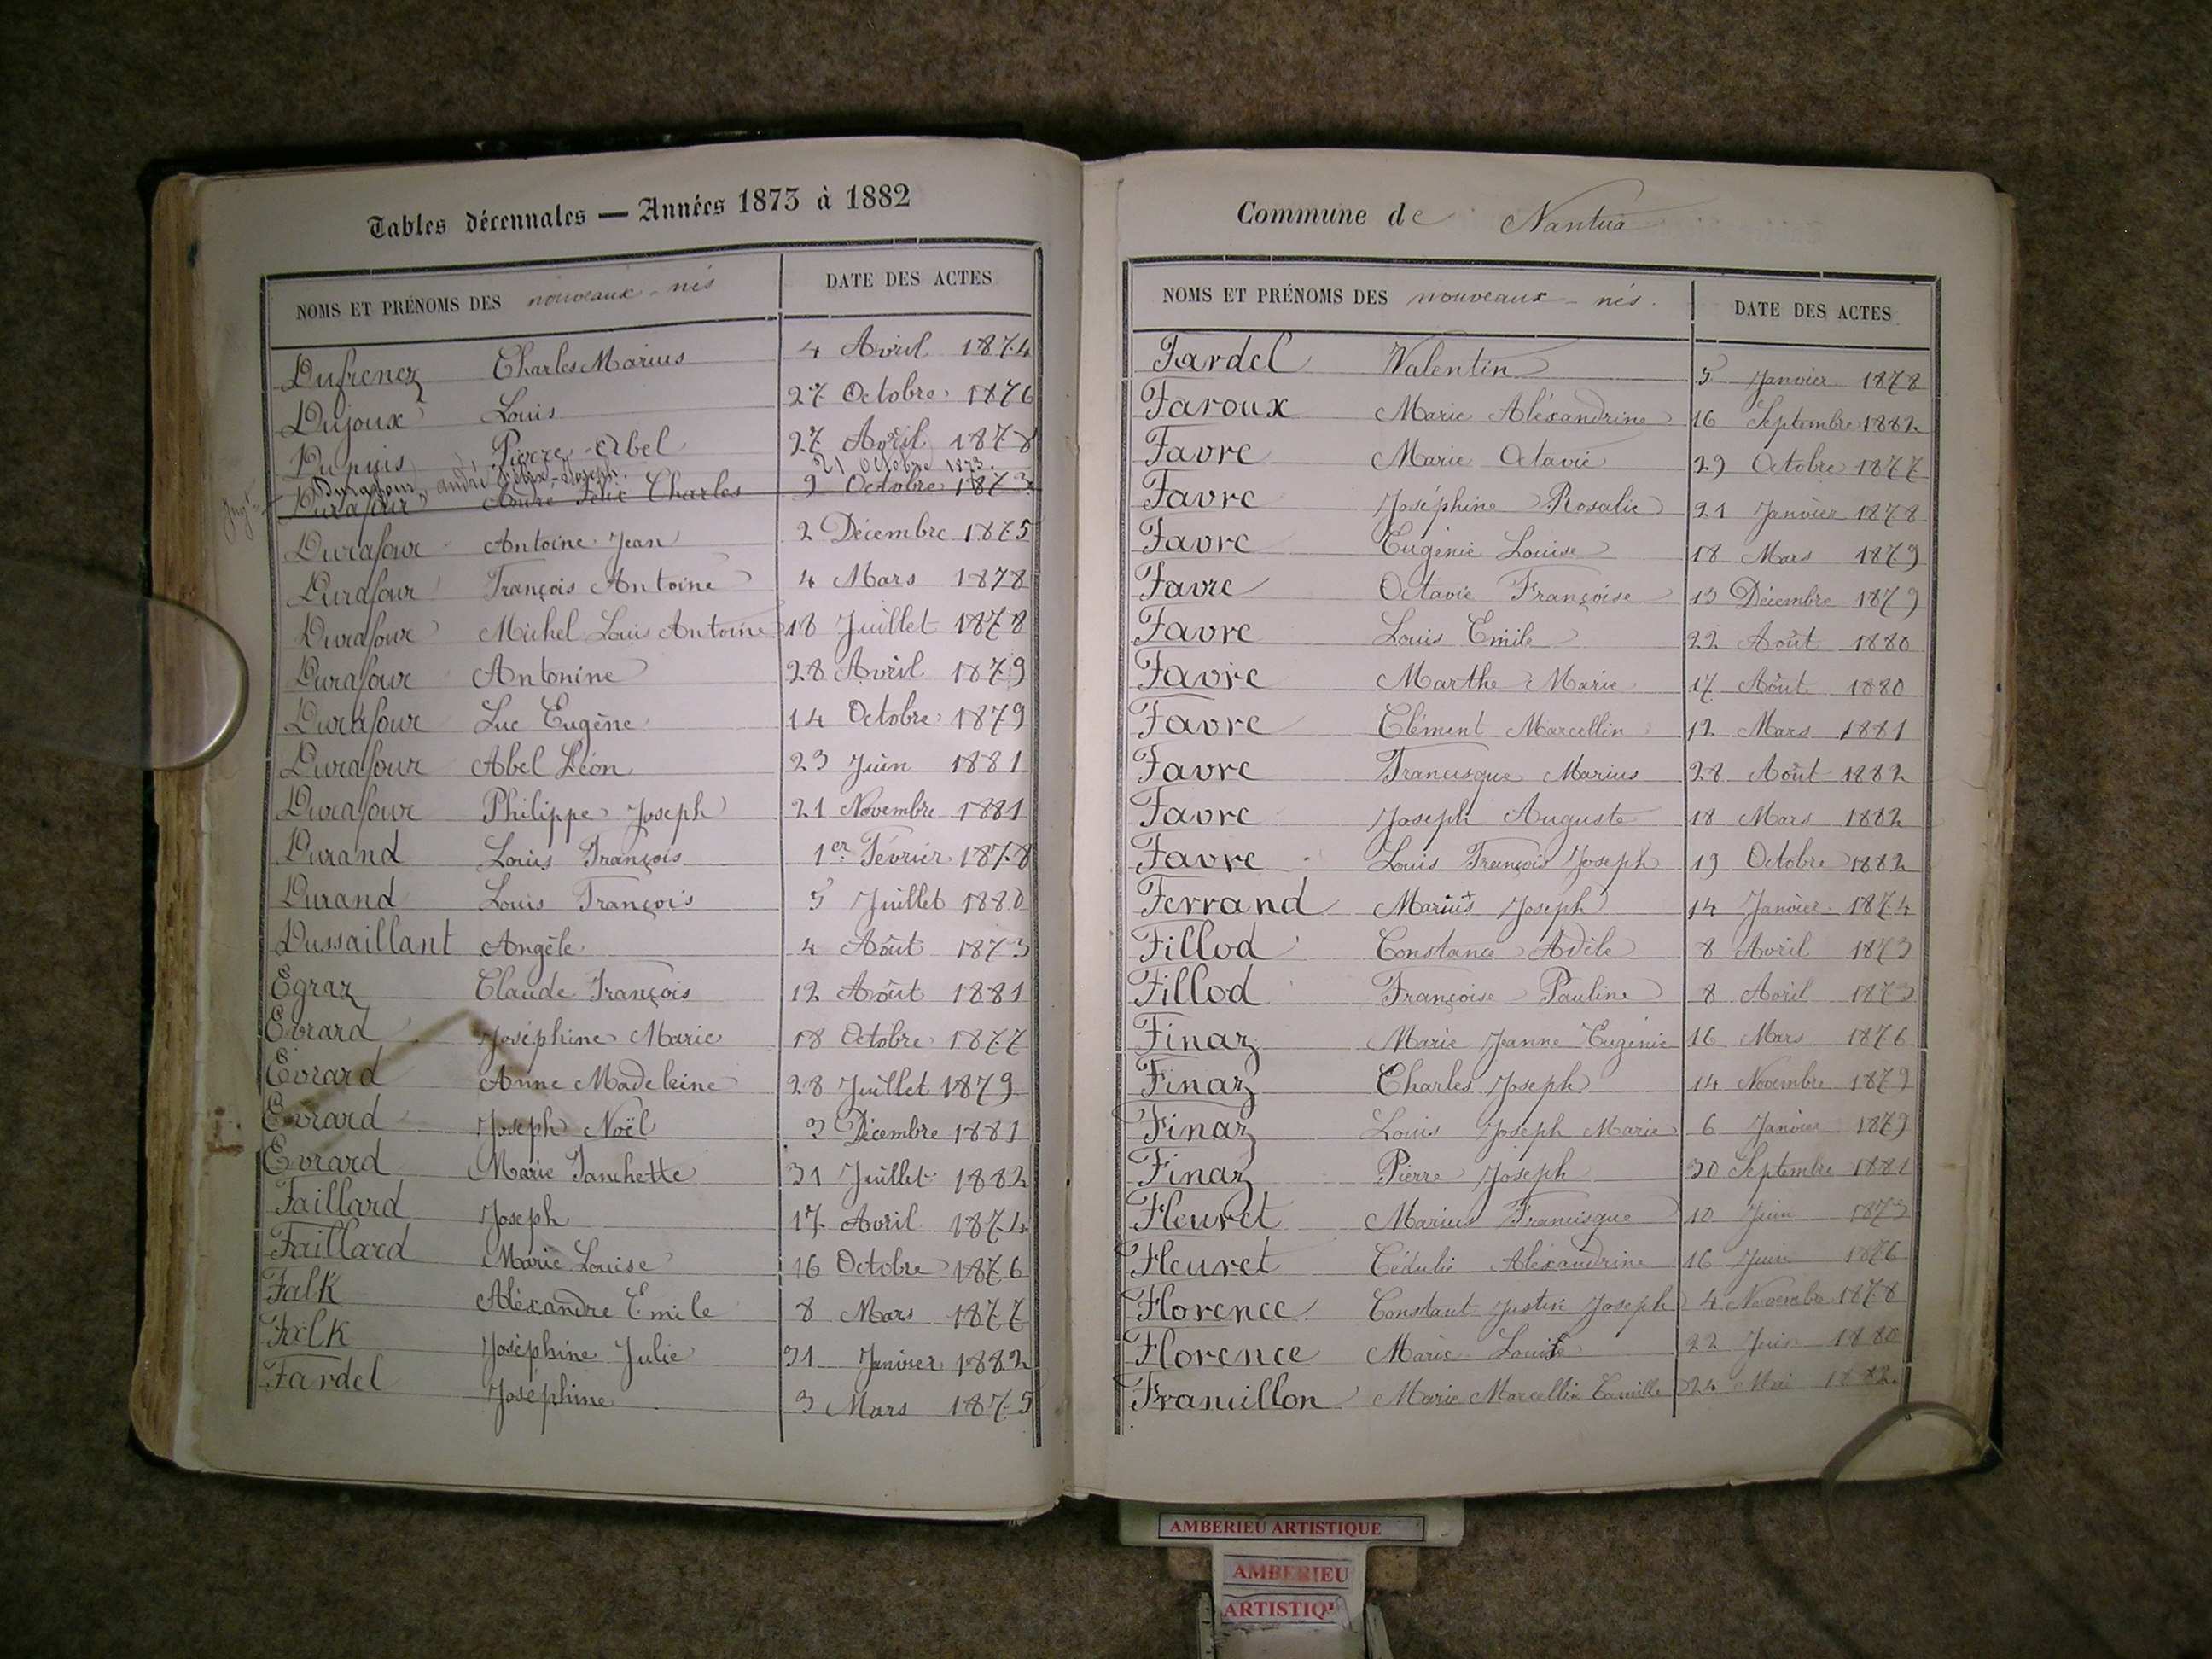 Tables décennales — Années 1873 à 1882
NOMS ET PRÉNOMS DES nouveaux-nés DATE DES ACTES
Dufrenez Charles Marius 4 Avril 1874
Dujoux Louis 27 Octobre 1876
Dupuis Pierre-Abel 27 Avril 1878
Durafour, André Félix-Joseph. 21 Octobre 1873.
Durafour André Félix Charles 9 Octobre 1873
Durafour Antoine Jean 2 Décembre 1875
Durafour François Antoine 4 Mars 1878
Durafour Michel Louis Antoine 18 Juillet 1878
Durafour Antonine 28 Avril 1879
Durafour Luc Eugène 14 Octobre 1879
Durafour Abel Léon 23 Juin 1881
Durafour Philippe Joseph 21 Novembre 1881
Durand Louis François 1er Février 1878
Durand Louis François 5 Juillet 1880
Dussaillant Angèle 4 Août 1873
Egraz Claude François 12 Août 1881
Evrard Joséphine Marie 18 Octobre 1877
Evrard Anne Madeleine 28 Juillet 1879
Evrard Joseph Noël 3 Décembre 1881
Evrard Marie Fanchette 31 Juillet 1882
Faillard Joseph 17 Avril 1874
Faillard Marie Louise 16 Octobre 1876
Falk Aléxandre Emile 8 Mars 1877
Falk Joséphine Julie 31 Janvier 1882
Fardel Joséphine 3 Mars 1875
Commune de Nantua
NOMS ET PRÉNOMS DES nouveaux-nés. DATE DES ACTES
Fardel Valentin 5 Janvier 1878
Faroux Marie Aléxandrine 16 Septembre 1882
Favre Marie Octavie 29 Octobre 1877
Favre Joséphine Rosalie 21 Janvier 1878
Favre Eugénie Louise 18 Mars 1879
Favre Octavie Françoise 13 Décembre 1879
Favre Louis Emile 22 Août 1880
Favre Marthe Marie 17 Août 1880
Favre Clément Marcellin 12 Mars 1881
Favre Francisque Marius 28 Août 1882
Favre Joseph Auguste 18 Mars 1882
Favre Louis François Joseph 19 Octobre 1882
Ferrand Marius Joseph 14 Janvier 1874
Fillod Constance Adèle 8 Avril 1873
Fillod Françoise Pauline 8 Avril 1873
Finaz Marie Jeanne Eugénie 16 Mars 1876
Finaz Charles Joseph 14 Novembre 1879
Finaz Louis Joseph Marie 6 Janvier 1879
Finaz Pierre Joseph 30 Septembre 1881
Fleuret Marius Francisque 10 Juin 1873
Fleuret Cédulie Aléxandrine 16 Juin 1876
Florence Constant Justin Joseph 4 Novembre 1878
Florence Marie Louise 22 Juin 1880
Framillon Marie Marcellin Camille 24 Mai 1882.
AMBERIEU ARTISTIQUE
AMBERIEU
ARTISTIQ